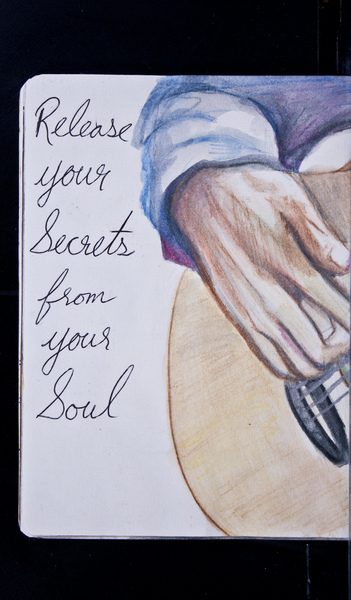 Release
your
Secrets
from
your
Soul